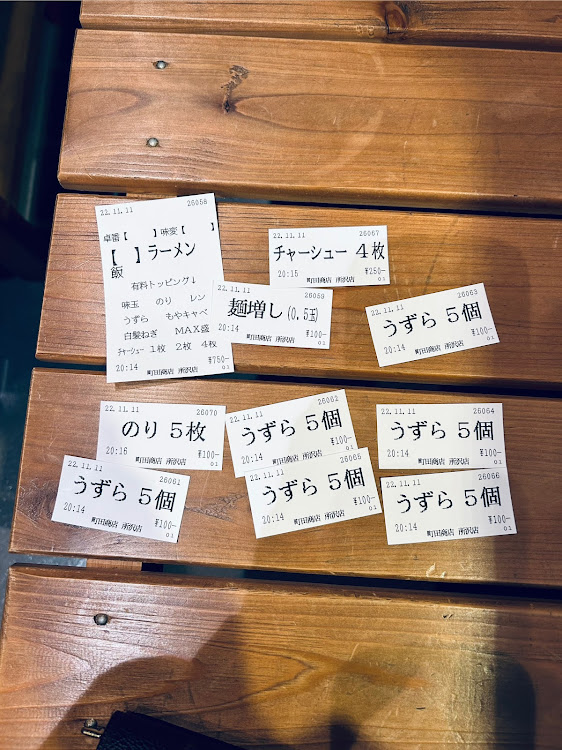 22.11.11 26058
卓番【 】味変【 】
【 】ラーメン
飯
有料トッピング↓
味玉 のり レン
うずら もやキャベ
白髪ねぎ MAX盛
ﾁｬｰｼｭｰ 1枚 2枚 4枚
20:14 ¥750-
22.11.11 26067
チャーシュー 4枚
20:15 ¥250-
町田商店 所沢店
22.11.11 26059
麺増し(0.5玉)
20:14 ¥100-
01
22.11.11 26063
うずら 5個
20:14 ¥100-
町田商店 所沢店 01
22.11.11 26070
のり 5枚
20:16 ¥100-
町田商店 所沢店 01
22.11.11 26062
うずら 5個
20:14 ¥100-
町田商店 所沢店
22.11.11 26064
うずら 5個
20:14 ¥100-
町田商店 所沢店 01
22.11.11 26061
うずら 5個
20:14 ¥100-
町田商店 所沢店 01
22.11.11 26065
うずら 5個
20:14 ¥100-
町田商店 所沢店 01
22.11.11 26066
うずら 5個
20:14 ¥100-
町田商店 所沢店 01